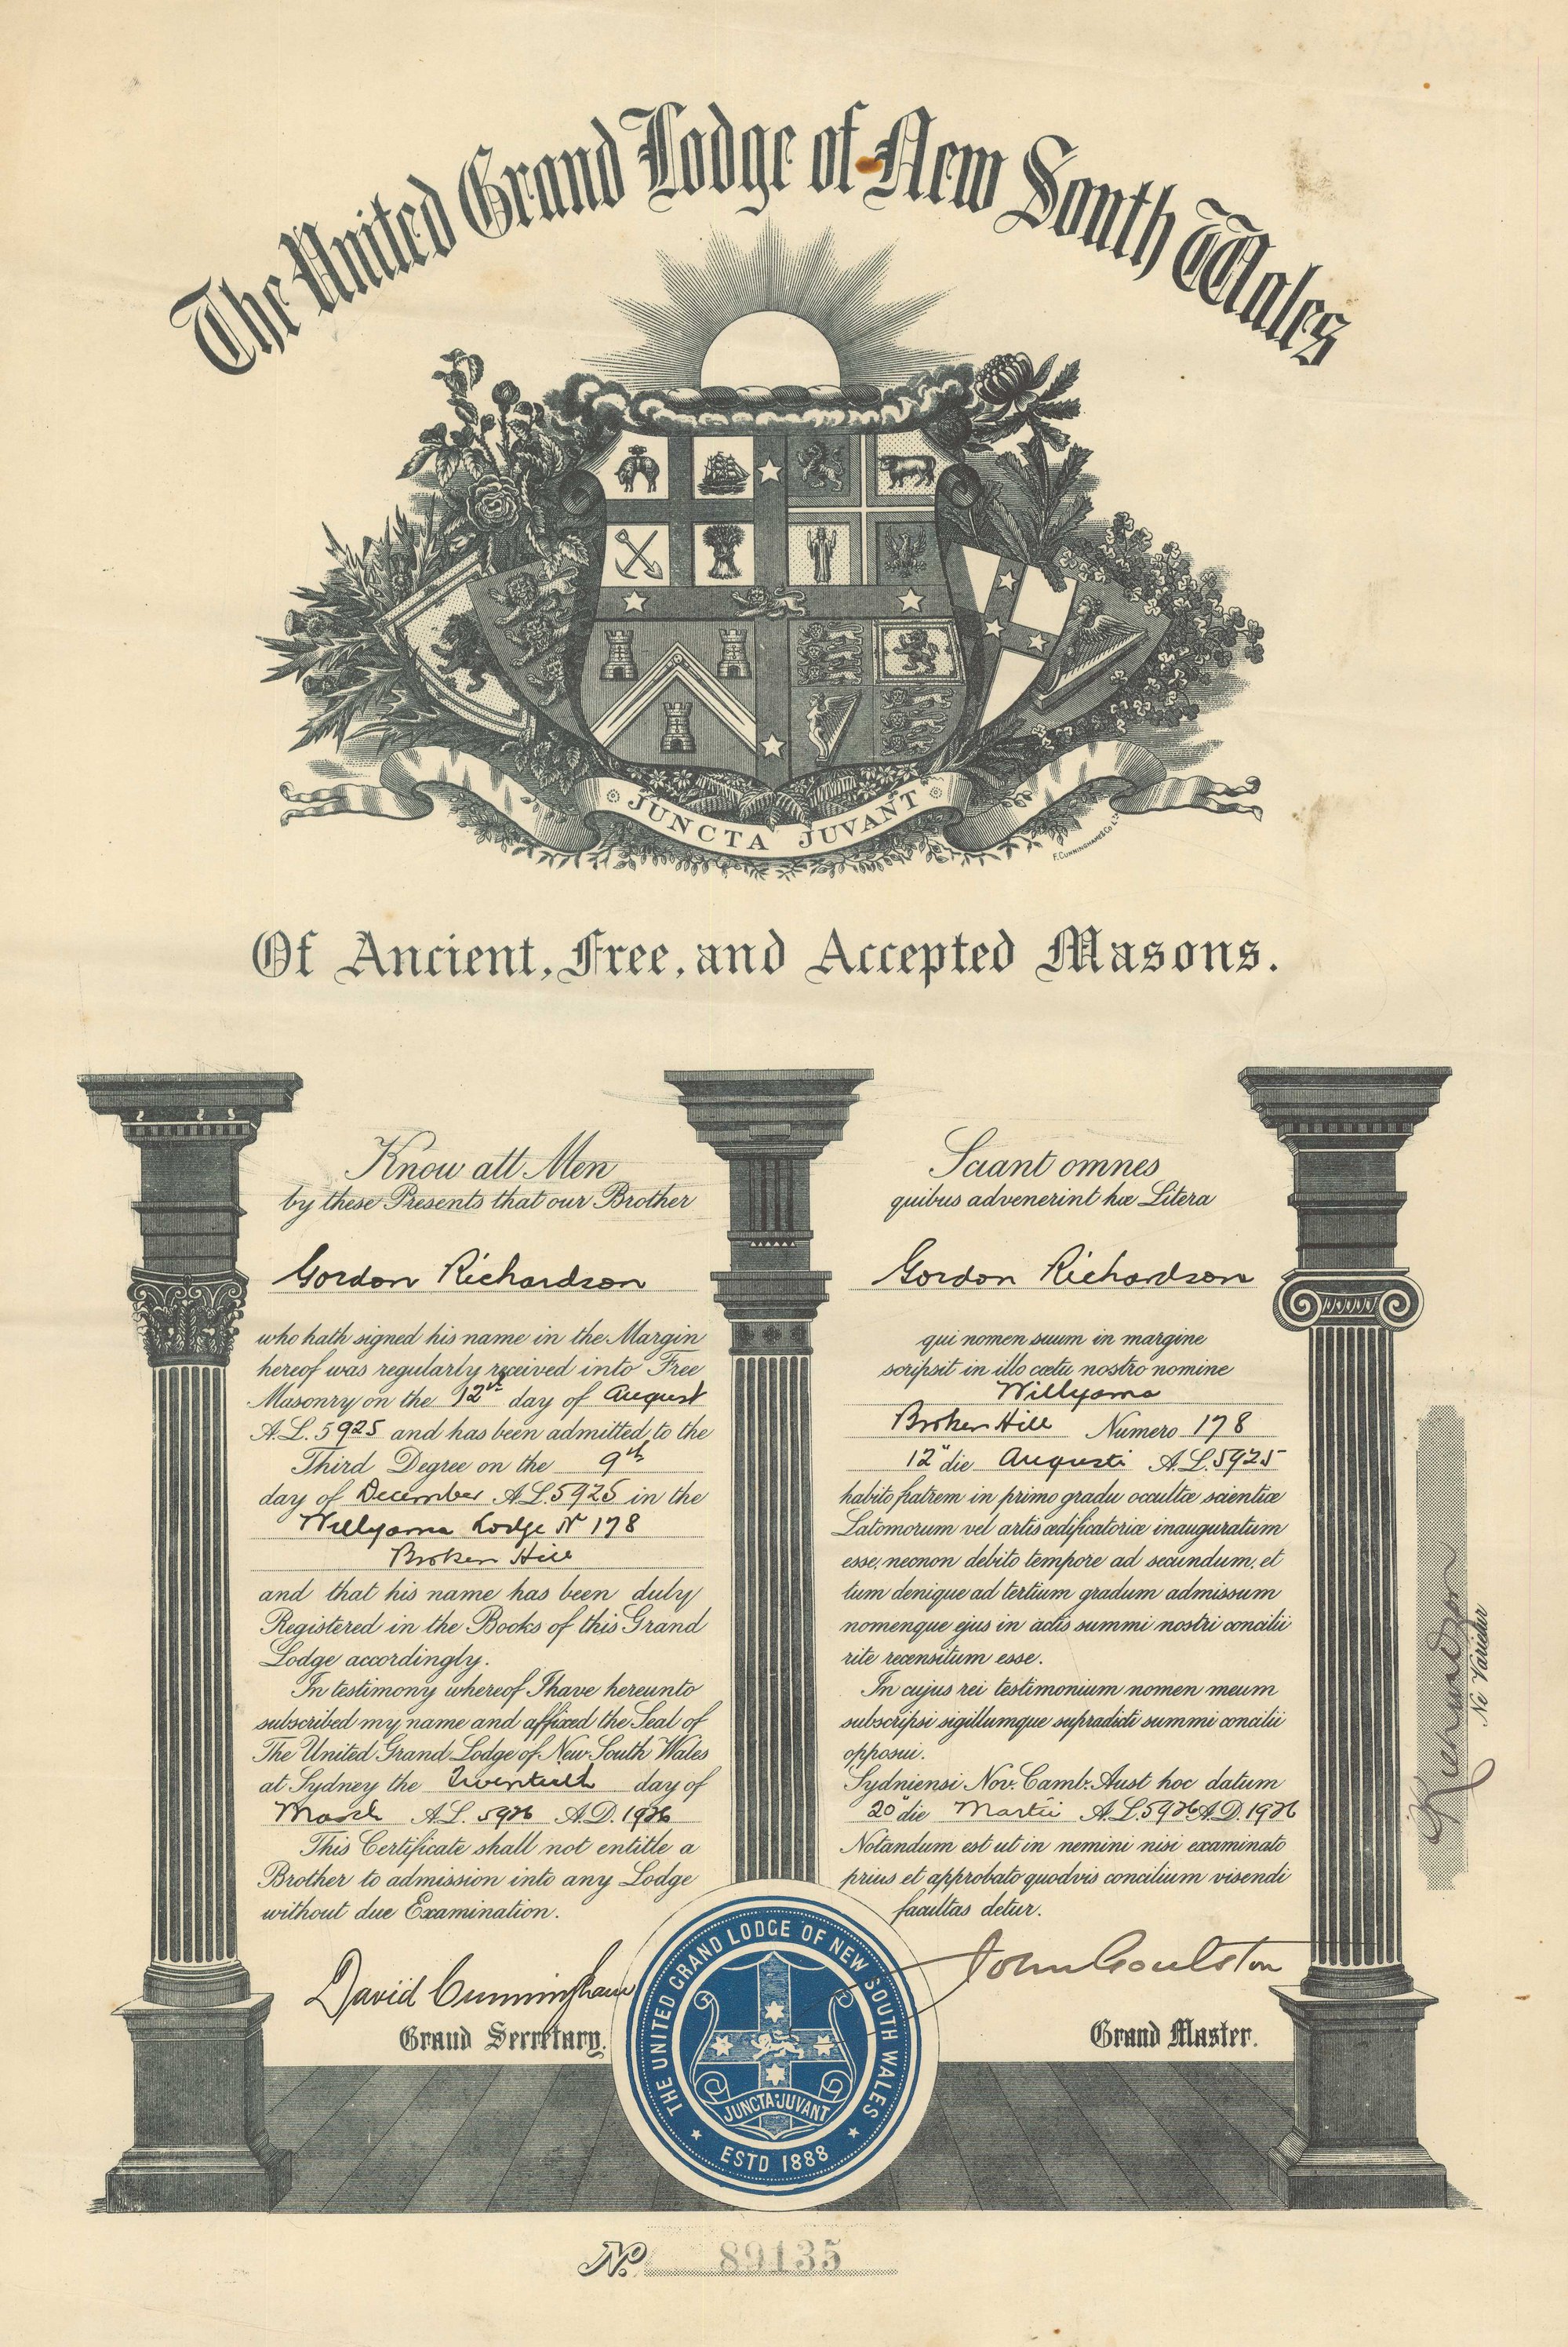 The United Grand Lodge of New South Wales
JUNCTA JUVANT
F. CUNNINGHAME & Co. Ld.
Of Ancient, Free, and Accepted Masons.
Know all Men
by these Presents that our Brother
Gordon Richardson
who hath signed his name in the Margin
hereof was regularly received into Free
Masonry on the 12th day of August
A.L. 5925 and has been admitted to the
Third Degree on the 9th
day of December A.L. 5925 in the
Willyama Lodge No 178
Broken Hill
and that his name has been duly
Registered in the Books of this Grand
Lodge accordingly.
In testimony whereof I have hereunto
subscribed my name and affixed the Seal of
The United Grand Lodge of New South Wales
at Sydney the Twentieth day of
March A.L. 5926 A.D. 1926
This Certificate shall not entitle a
Brother to admission into any Lodge
without due Examination.
David Cunningham
Grand Secretary.
Sciant omnes
quibus advenerint hæ Litera
Gordon Richardson
qui nomen suum in margine
scripsit in illo cœtu nostro nomine
Willyama
Broken Hill Numero 178
12" die Augusti A.L. 5925
habito fratrem in primo gradu occultæ scientiæ
Latomorum vel artis ædificatoriæ inauguratum
esse, necnon debito tempore ad secundum, et
tum denique ad tertium gradum admissum
nomenque ejus in actis summi nostri concilii
rite recensitum esse.
In cujus rei testimonium nomen meum
subscripsi sigillumque supradicti summi concilii
opposui.
Sydniensi Nov. Camb. Aust hoc datum
20" die Martii A.L. 5926 A.D. 1926
Notandum est ut in nemini nisi examinato
prius et approbato quodvis concilium visendi
facultas detur.
John Goulston
Grand Master.
Ne Varietur
THE UNITED GRAND LODGE OF NEW SOUTH WALES
JUNCTA JUVANT
ESTD 1888
No. 89135